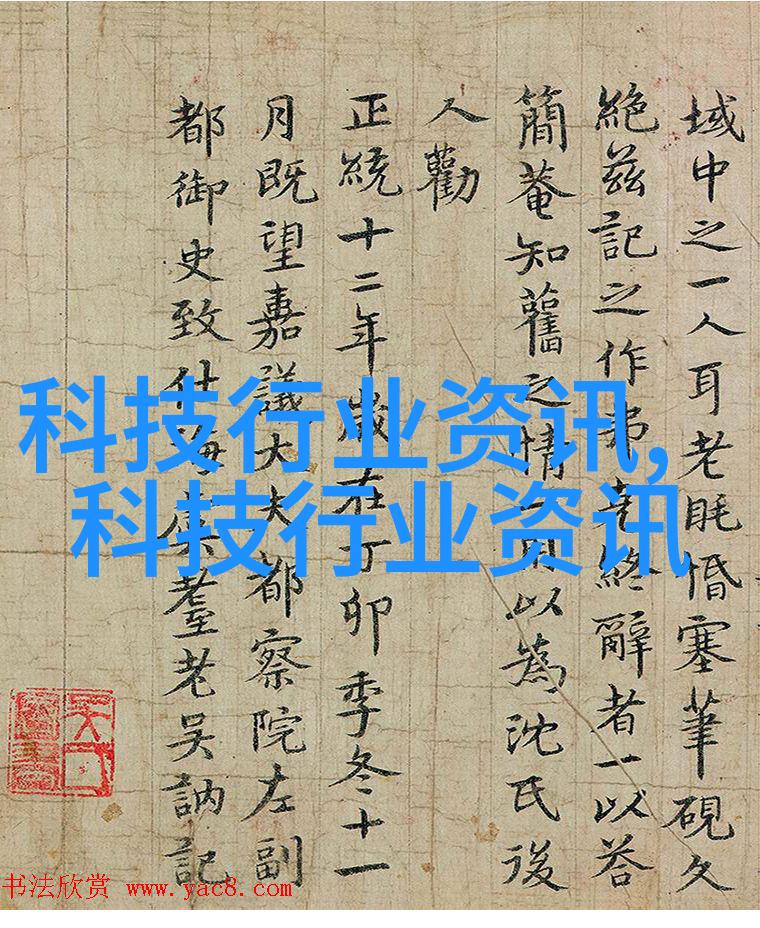 域中之一人耳老眊惛塞筆硯久
絶茲記之作弗克終辭者一以荅
簡菴知舊之情一則以為沈氏後
人勸
正統十二年歲在丁卯季冬十一
月既望嘉議大夫都察院左副
都御史致仕海虞耋老吳訥記
科技行业资讯,
科技行业资讯
书法欣赏 www.yac8.com